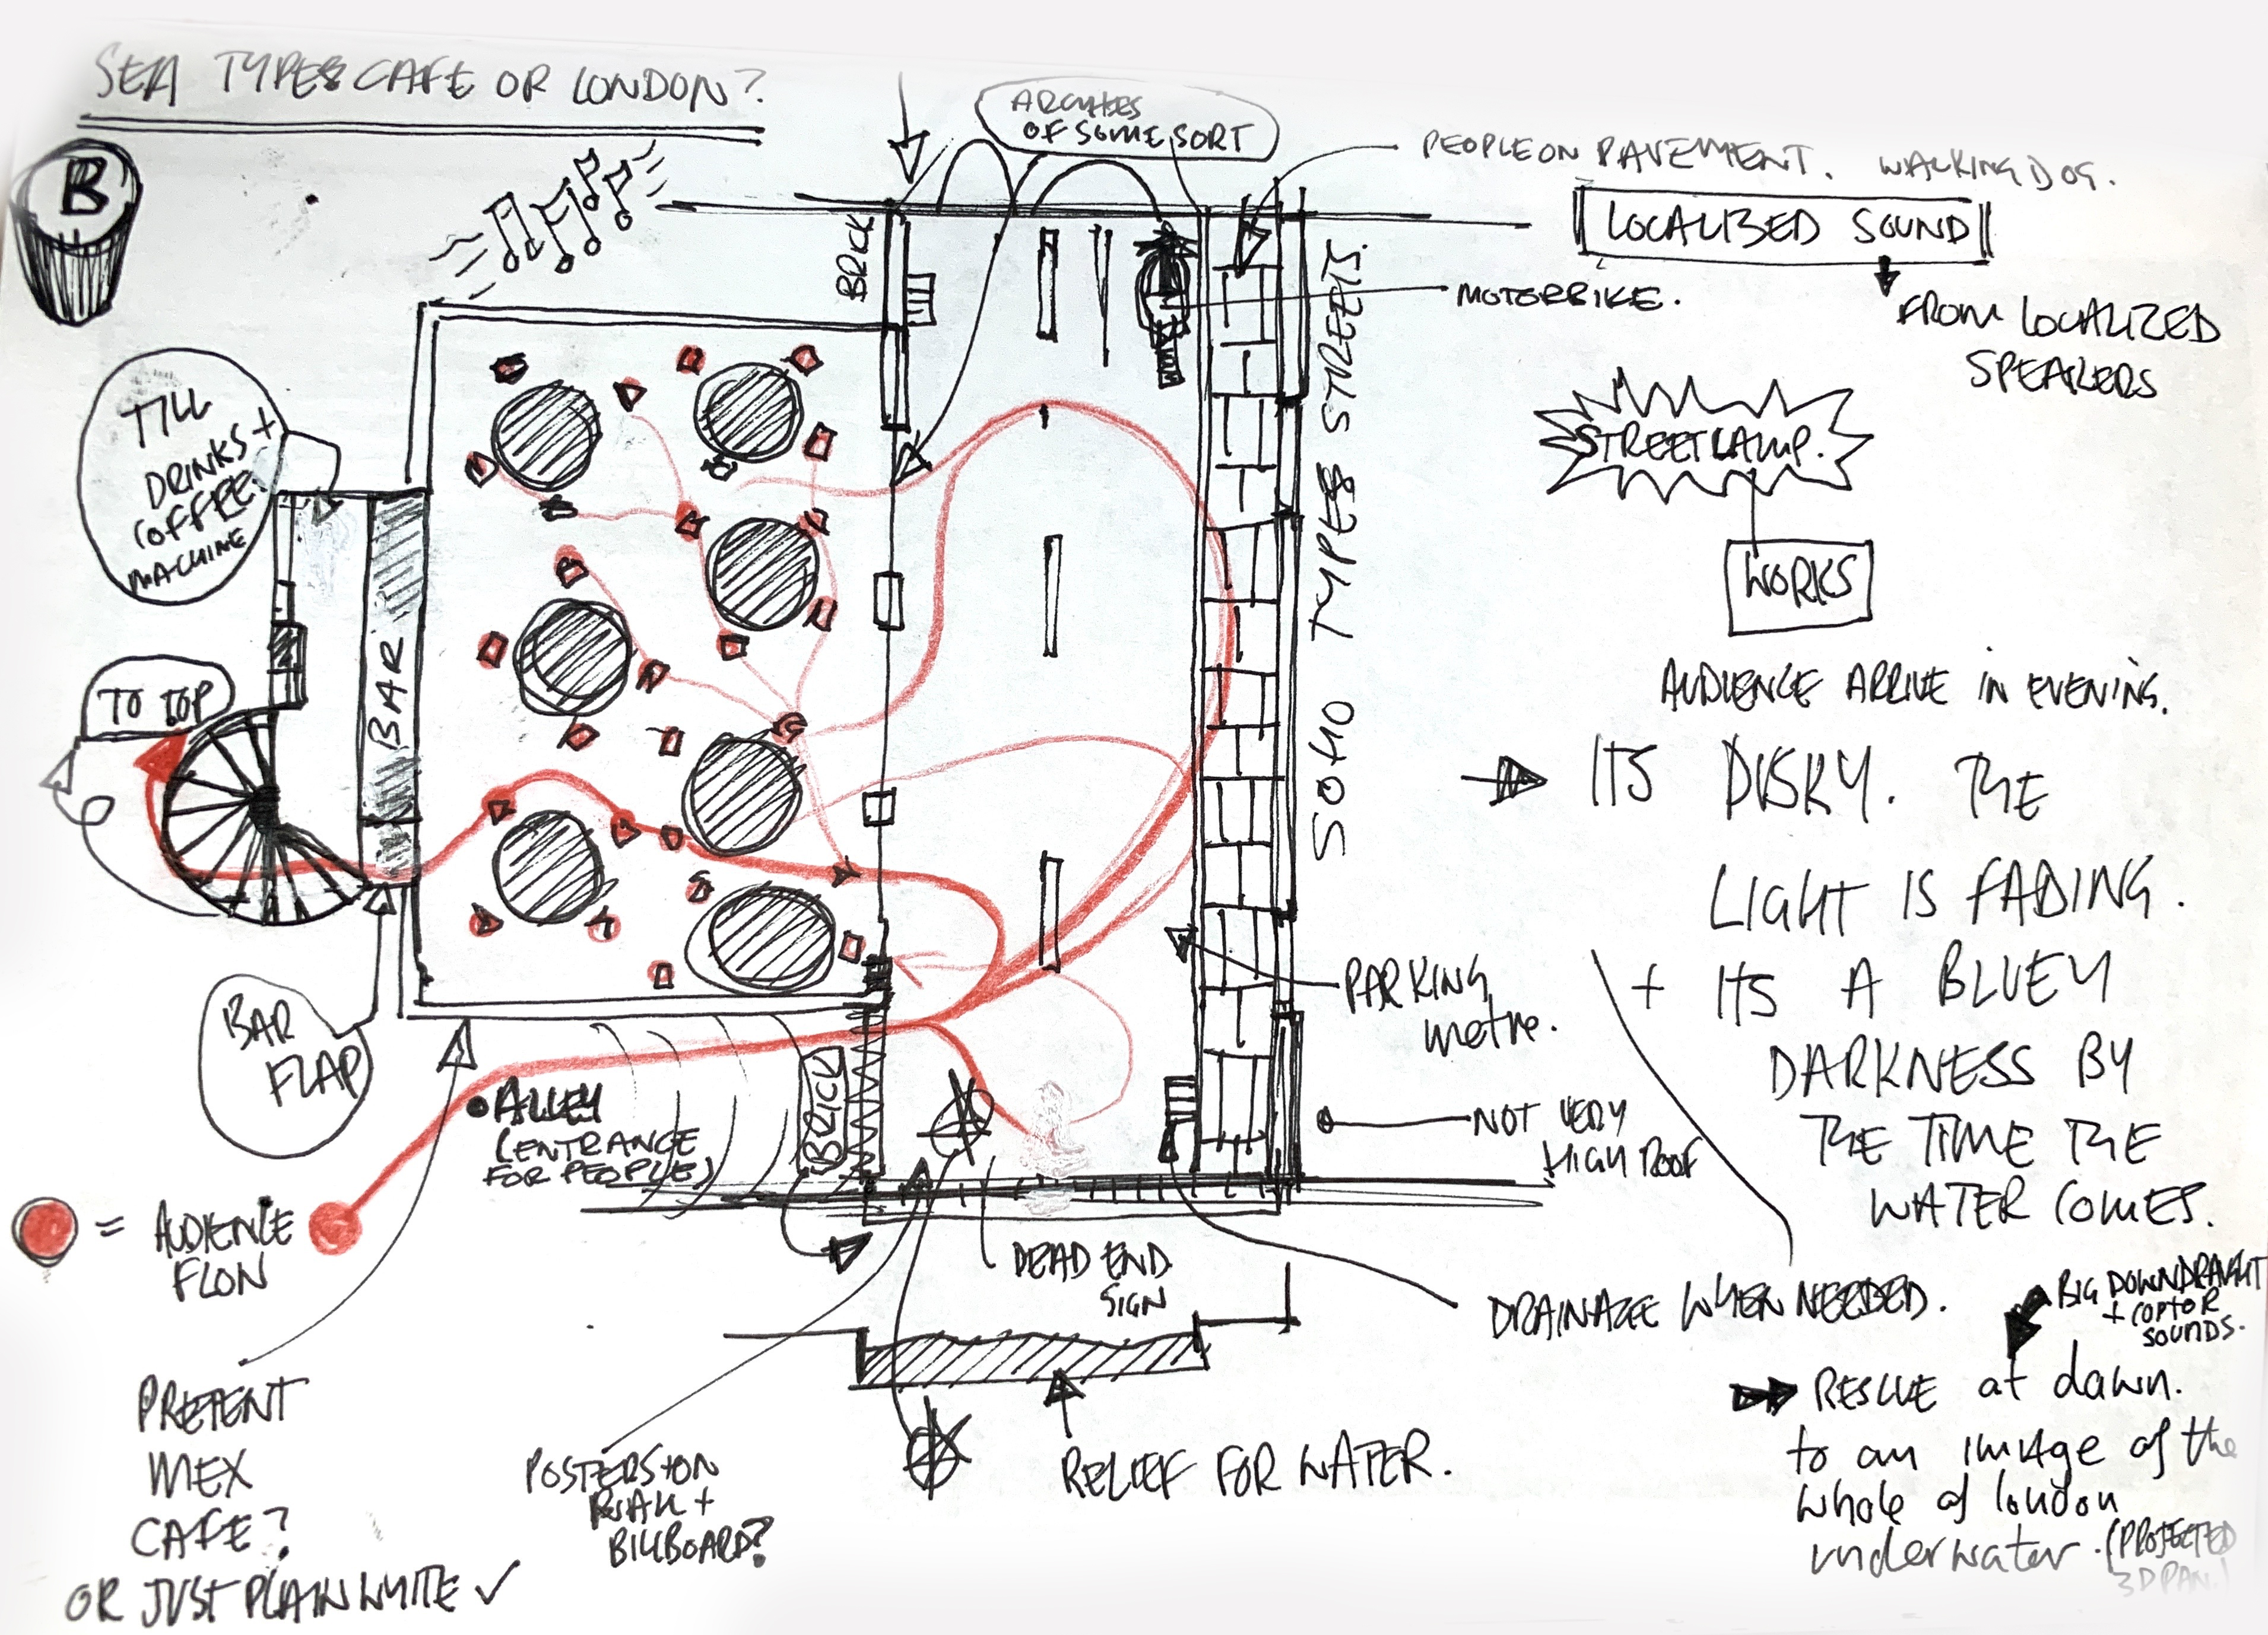 SEA TYPES CAFE OR LONDON?
B
ARCHES
OF SOME SORT
PEOPLE ON PAVEMENT. WALKING DOG.
LOCALIZED SOUND
FROM LOCALIZED
SPEAKERS
BRICK
MOTORBIKE.
SOHO TYPES STREETS.
STREETLAMP.
WORKS
TILL
DRINKS +
COFFEE
MACHINE
BAR
TO TOP
AUDIENCE ARRIVE IN EVENING.
ITS DISKY. THE
LIGHT IS FADING.
+ ITS A BLUEY
DARKNESS BY
THE TIME THE
WATER COMES.
PARKING
metre.
BAR
FLAP
ALLEY
(ENTRANCE
FOR PEOPLE)
BRICK
NOT VERY
HIGH ROOF
= AUDIENCE
FLOW
DEAD END
SIGN
DRAINAGE WHEN NEEDED.
BIG DOWNDRAUGHT
+ COPTOR
SOUNDS.
RESCUE at dawn.
to an image of the
whole of london
underwater. (PROJECTED
3D PAN.)
MEX
CAFE?
OR JUST PLAIN WHITE ✓
POSTERS ON
+
BILLBOARD?
RELIEF FOR WATER.